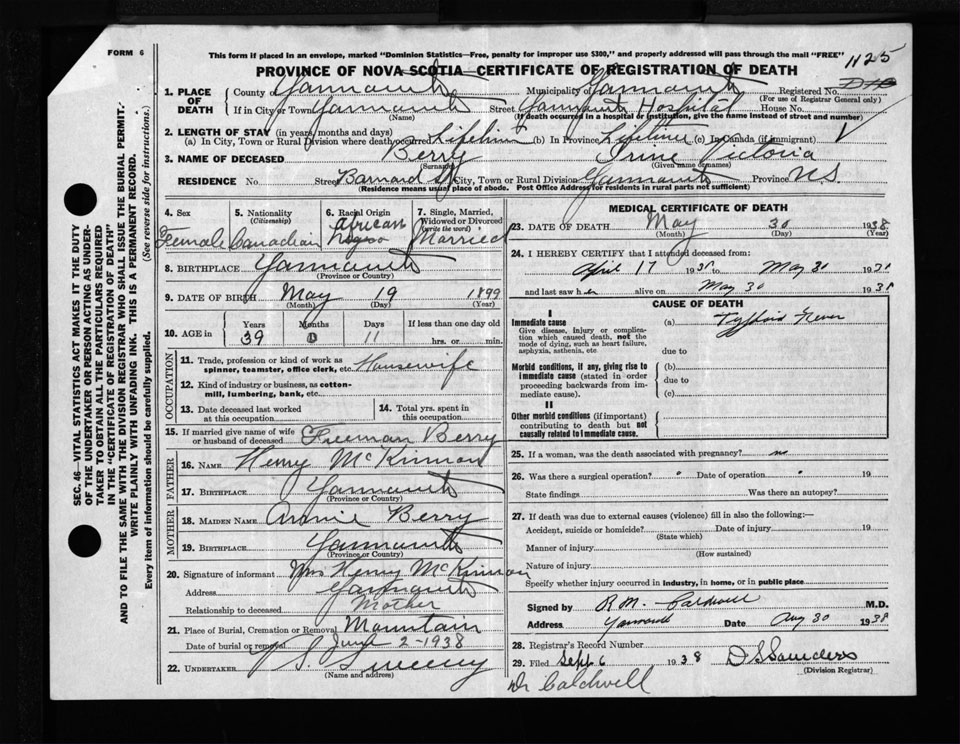 FORM 6
This form if placed in an envelope, marked "Dominion Statistics—Free, penalty for improper use $300," and properly addressed will pass through the mail "FREE"
1125
PROVINCE OF NOVA SCOTIA—CERTIFICATE OF REGISTRATION OF DEATH
1. PLACE OF DEATH
County of Yarmouth Municipality of Yarmouth Registered No.
(For use of Registrar General only)
If in City or Town Yarmouth Street Yarmouth Hospital House No.
(Name) (If death occurred in a hospital or institution, give the name instead of street and number)
2. LENGTH OF STAY (in years, months and days)
(a) In City, Town or Rural Division where death occurred Lifetime (b) In Province Lifetime (c) In Canada (if immigrant)
3. NAME OF DECEASED Berry Irine Victoria
(Surname) (Given name or names)
RESIDENCE No. Street Barnard St City, Town or Rural Division Yarmouth Province N.S.
(Residence means usual place of abode. Post Office Address for residents in rural parts not sufficient)
4. Sex Female
5. Nationality (Citizenship) Canadian
6. Racial Origin African Negro
7. Single, Married, Widowed or Divorced (write the word) Married
8. BIRTHPLACE Yarmouth
(Province or Country)
9. DATE OF BIRTH May 19 1899
(Month) (Day) (Year)
10. AGE in Years Months Days If less than one day old
39 0 11 hrs. or min.
OCCUPATION
11. Trade, profession or kind of work as spinner, teamster, office clerk, etc. Housewife
12. Kind of industry or business, as cotton-mill, lumbering, bank, etc.
13. Date deceased last worked at this occupation
14. Total yrs. spent in this occupation
15. If married give name of wife or husband of deceased Freeman Berry
FATHER
16. NAME Henry McKinnon
17. BIRTHPLACE Yarmouth
(Province or Country)
MOTHER
18. MAIDEN NAME Annie Berry
19. BIRTHPLACE Yarmouth
(Province or Country)
20. Signature of informant Mrs Henry McKinnon
Address Yarmouth
Relationship to deceased Mother
21. Place of Burial, Cremation or Removal Mountain
Date of burial or removal June 2-1938
22. UNDERTAKER V S Sweeny
(Name and address)
MEDICAL CERTIFICATE OF DEATH
23. DATE OF DEATH May 30 1938
(Month) (Day) (Year)
24. I HEREBY CERTIFY that I attended deceased from:
April 17 1938 to May 30 1938
and last saw her alive on May 30 1938
CAUSE OF DEATH
I
Immediate cause
Give disease, injury or complication which caused death, not the mode of dying, such as heart failure, asphyxia, asthenia, etc
(a) Typhoid Fever
due to
Morbid conditions, if any, giving rise to immediate cause (stated in order proceeding backwards from immediate cause).
(b)
due to
(c)
II
Other morbid conditions (if important) contributing to death but not causally related to immediate cause.
25. If a woman, was the death associated with pregnancy? no
26. Was there a surgical operation? " Date of operation " 19
State findings Was there an autopsy?
27. If death was due to external causes (violence) fill in also the following:—
Accident, suicide or homicide? Date of injury 19
(State which)
Manner of injury
(How sustained)
Nature of injury
Specify whether injury occurred in industry, in home, or in public place
Signed by R.M. Caldwell M.D.
Address Yarmouth Date Aug 30 1938
28. Registrar's Record Number
29. Filed Sept 6 1938 D S Saunders
(Division Registrar)
Dr Caldwell
SEC. 46—VITAL STATISTICS ACT MAKES IT THE DUTY
OF THE UNDERTAKER OR PERSON ACTING AS UNDER-
TAKER TO OBTAIN ALL THE PARTICULARS REQUIRED
IN THE "CERTIFICATE OF REGISTRATION OF DEATH"
AND TO FILE THE SAME WITH THE DIVISION REGISTRAR WHO SHALL ISSUE THE BURIAL PERMIT.
WRITE PLAINLY WITH UNFADING INK. THIS IS A PERMANENT RECORD.
Every item of information should be carefully supplied. (See reverse side for instructions.)